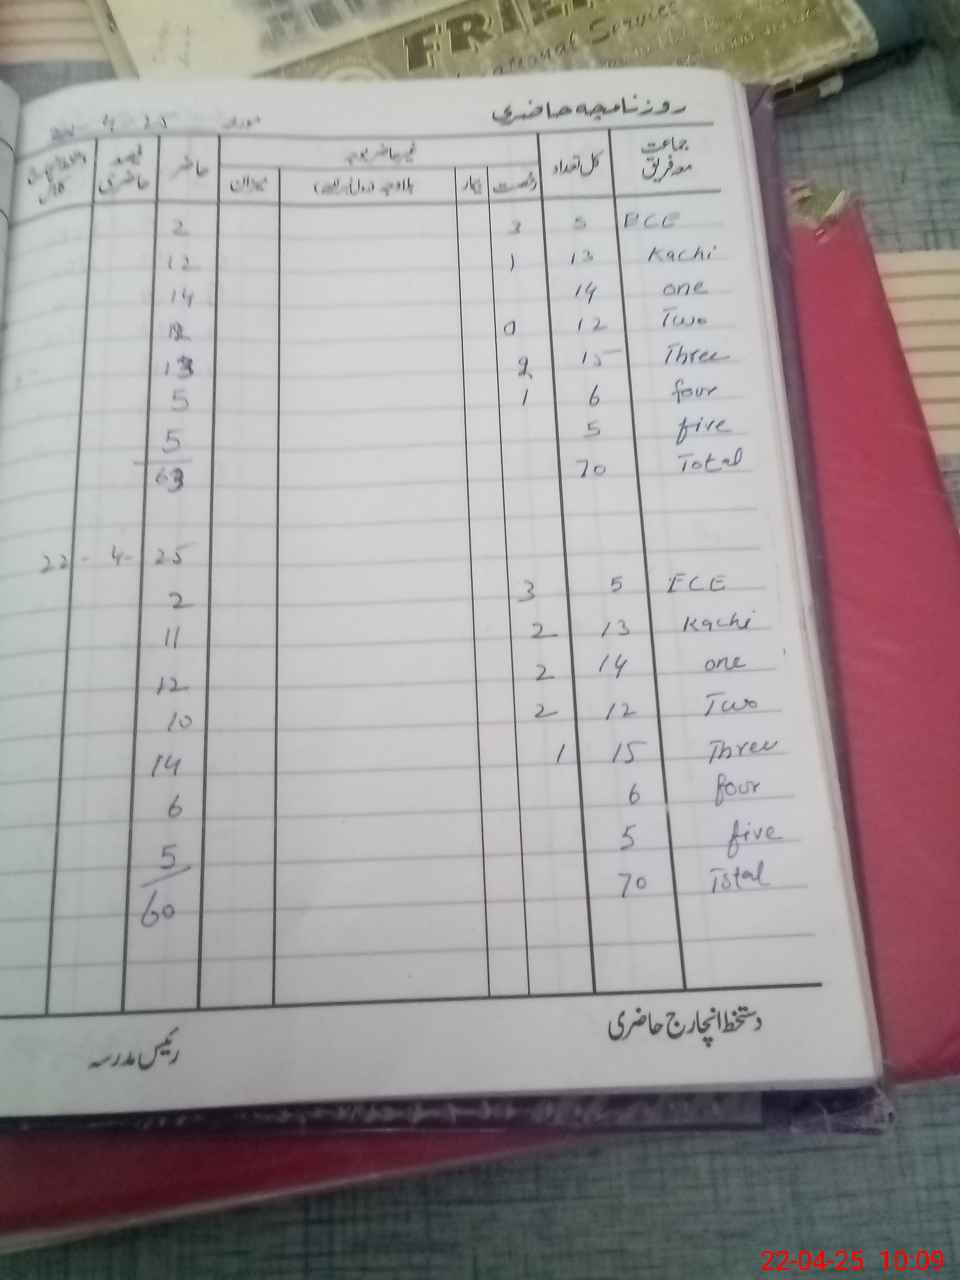 FRIEN
ational Services
روزنامچہ حاضری
مورخہ 4 - 25
جماعت معہ فریق کل تعداد غیر حاضر بوجہ حاضر فیصد حاضری
رخصت بیمار بلاوجہ میزان
ECE 5 3 2
Kachi 13 1 12
one 14 14
Two 12 0 12
Three 15 2 13
four 6 1 5
five 5 5
Total 70 63
22 - 4 - 25
ECE 5 3 2
Kachi 13 2 11
one 14 2 12
Two 12 2 10
Three 15 1 14
four 6 6
five 5 5
Total 70 60
دستخط انچارج حاضری رئیس مدرسہ
22-04-25 10:09